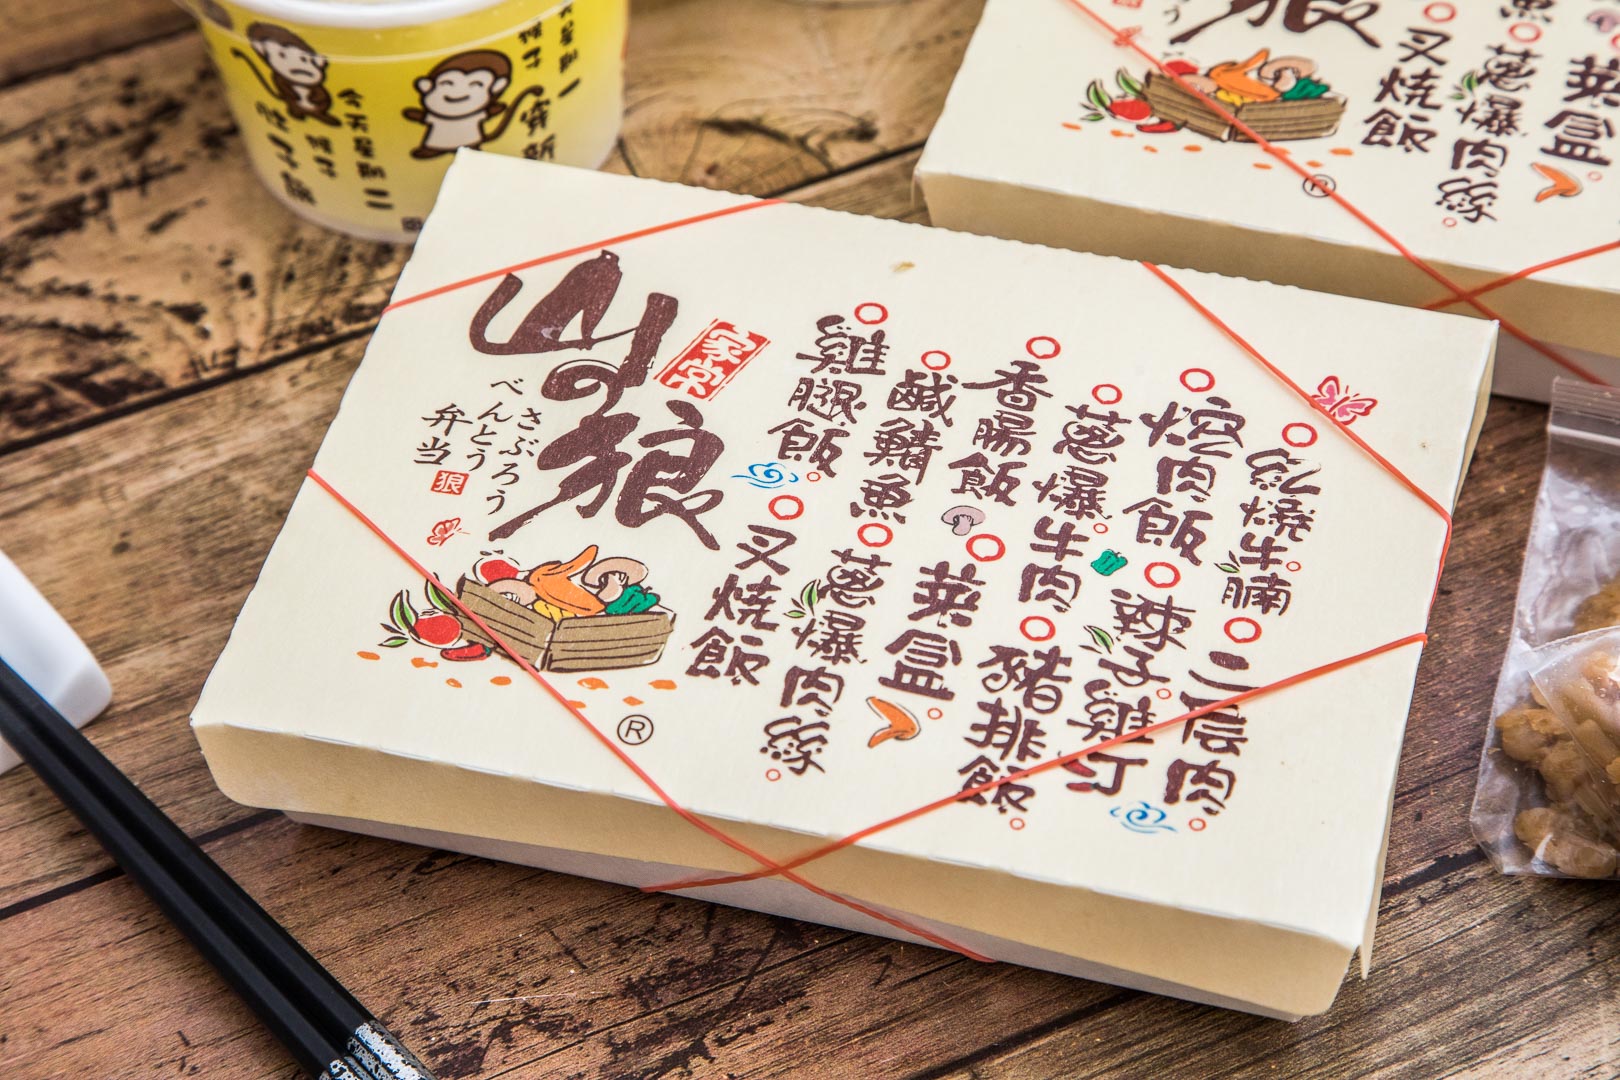 山の狼
家常
さぶろう
べんとう
弁当
狼
雞腿飯
叉燒飯
鹹鯖魚
蔥爆肉絲
香腸飯
菜盒
蔥爆牛肉
豬排飯
焢肉飯
辣子雞丁
紅燒牛腩
二層肉
®
狼
叉燒飯
蔥爆肉絲
菜盒
®
今天星期二
猴子
肚子餓
猴子